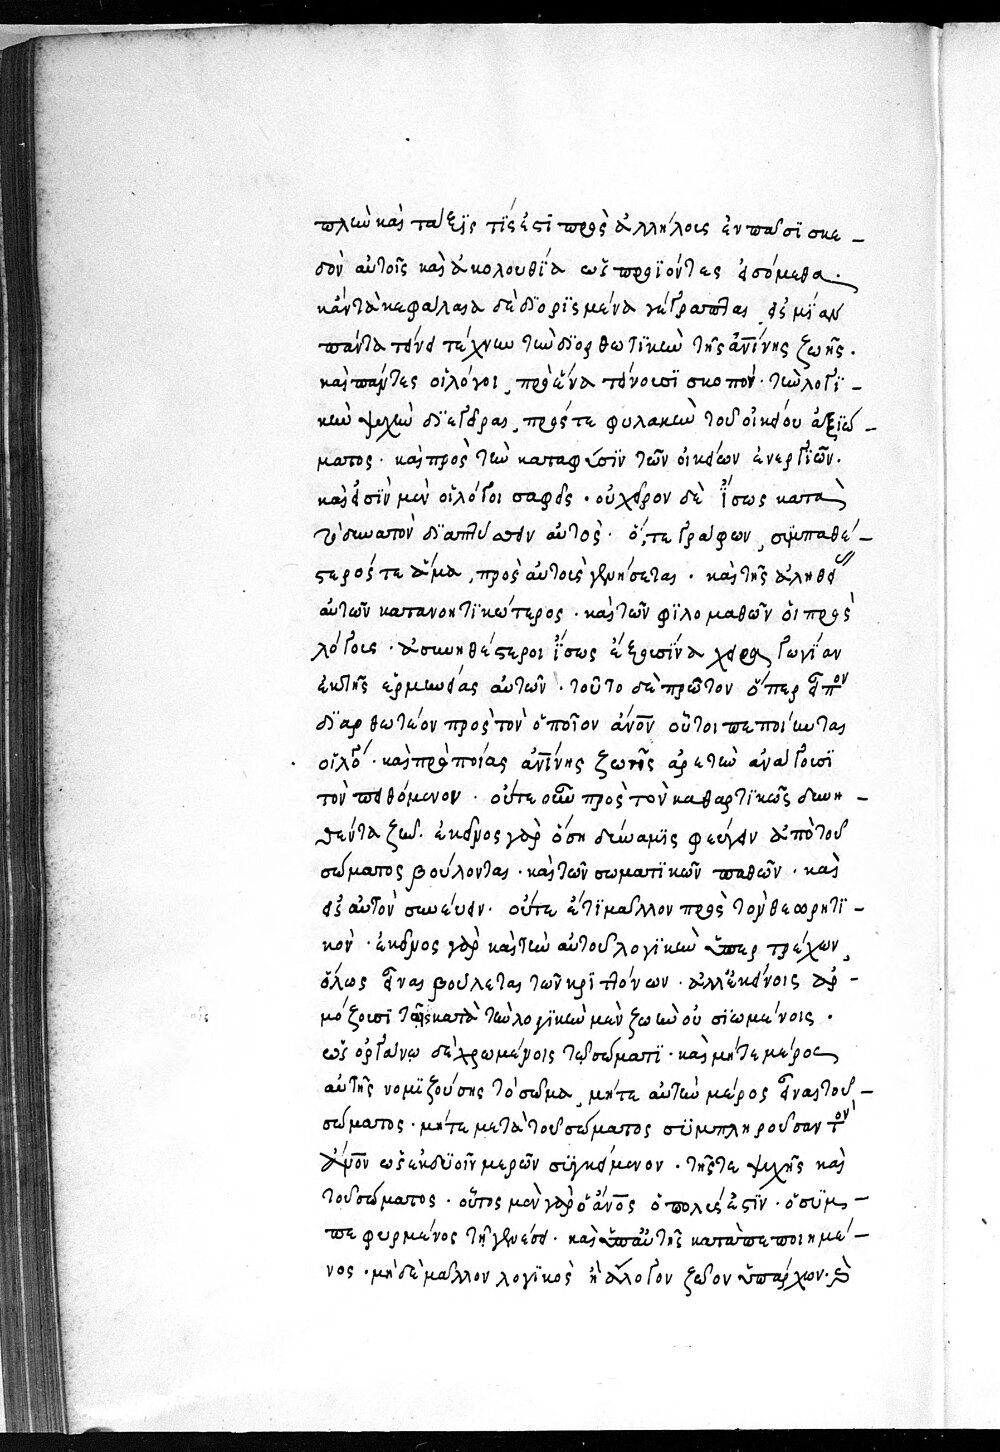 πλῶν καὶ τάξις τίς ἐστι πρὸς ἀλλήλους ἐν πᾶσι σκε –
δὸν αὐτοῖς καὶ ἀκολουθία ὡς προϊόντες εἰσόμεθα.
κἄντα κεφάλαια δὲ διορισμένα γέγραπται, εἰς μίαν
πάντα τείνει τέχνην τὴν διορθωτικὴν τῆς ἀνίνης ζωῆς.
καὶ πάντες οἱ λόγοι, πρὸς ἕνα τείνουσι σκοπόν· τὴν λογι –
κὴν ψυχὴν διεγεῖραι, πρός τε φυλακὴν τοῦ οἰκείου ἀξιώ –
ματος· καὶ πρὸς τὴν κατα φύσιν τῶν οἰκείων ἐνεργιῶν.
καὶ εἰσὶν μὲν οἱ λόγοι σαφεῖς· οὐ χεῖρον δὲ ἴσως κατὰ
τὸ δυνατὸν διαπτύσσειν αὐτούς· ὅ, τε γράφων, συμπαθέ –
στερός τε ἅμα, πρὸς αὐτοὺς γενήσεται· καὶ τῆς ἀληθείας
αὐτῶν κατανοητικώτερος· καὶ τῶν φιλομαθῶν οἱ πρὸς
λόγους· ἀσυνηθέστεροι ἴσως ἕξουσίν τινα χειραγωγίαν
ἐκ τῆς ἑρμηνείας αὐτῶν· τοῦτο δὲ πρῶτον ὅπερ εἶπον
διαρθωτέον πρὸς τὸν ὁποῖον ἄνον οὗτοι πεποίηνται
οἱ λό· καὶ πρὸ ποίας ἀνίνης ζωῆς ἀρετὴν ἀνάγουσι
τὸν πειθόμενον· οὔτε οὖν πρὸς τὸν καθαρτικῶς δυνη –
θέντα ζῶ. ἐκεῖνος γὰρ ὅση δύναμις φεύγειν ἀπὸ τοῦ
σώματος βούλονται· καὶ τῶν σωματικῶν παθῶν· καὶ
εἰς αὐτὸν συνεύειν· οὔτε ἔτι μᾶλλον πρὸς τὸν θεωρητι –
κόν· ἐκεῖνος γὰρ καὶ τὴν αὐτοῦ λογικὴν ὑπερτρέχων,
ὅλως εἶναι βούλεται τῶν κρειττόνων· ἀλλ' ἐκείνοις ἁρ –
μόζουσι τοῖς κατὰ τὴν λογικὴν μὲν ζωὴν οὐσιωμένοις·
ὡς ὀργάνῳ δὲ χρωμένοις τῷ σώματι· καὶ μήτε μέρος
αὐτῆς νομίζούσης τὸ σῶμα, μήτε αὐτὴν μέρος εἶναι τοῦ –
σώματος· μήτε μετὰ τοῦ σώματος συμπληροῦσαν τὸν
ἄνον ὡς ἐκ δυοῖν μερῶν συγκείμενον· τῆς τε ψυχῆς καὶ
τοῦ σώματος· οὗτος μὲν γὰρ ὁ ἄνος ὁ πολύς ἐστιν· ὁ συμ –
πεφυρμένος τῇ γενέσει· καὶ ὑπ' αὐτῆς καταπεποιημέ –
νος· μηδὲ μᾶλλον λογικὸς ἢ ἄλογον ζῶον ὑπάρχων· ὁ